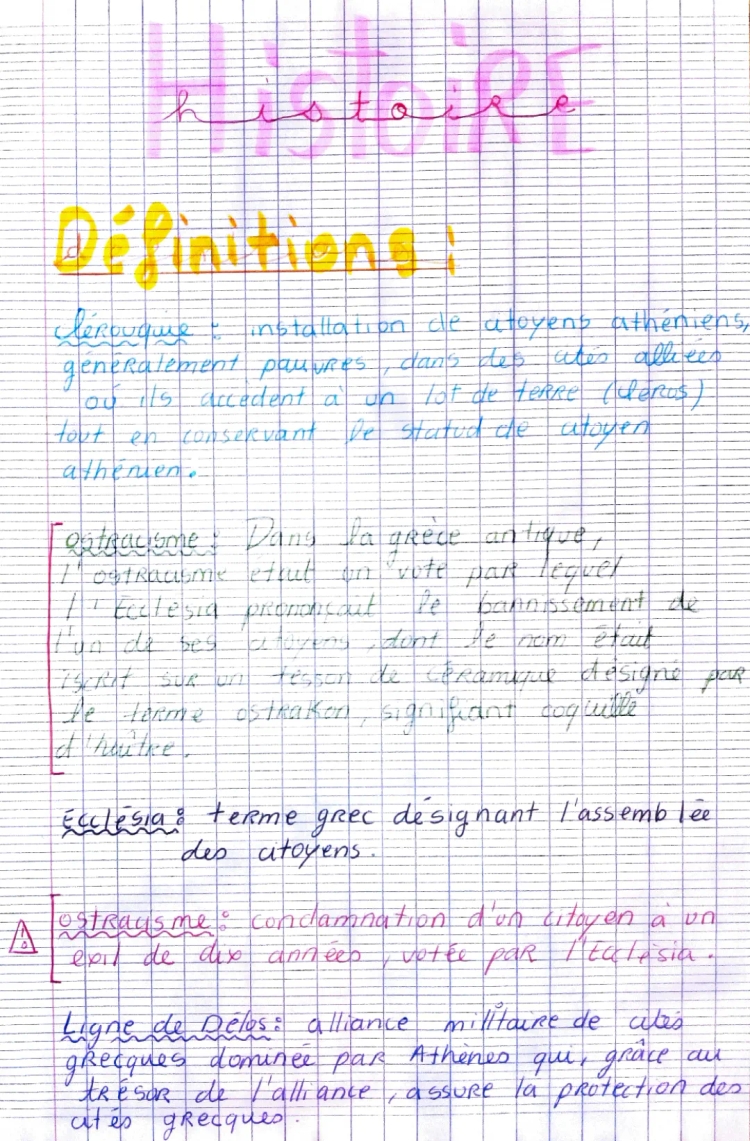 HistoiRE
histoire
Définitions :
clérouquie : installation de citoyens athéniens,
généralement pauvres, dans des cités alliées
où ils accèdent à un lot de terre (cléros)
tout en conservant le statud de citoyen
athénien.
ostracisme : Dans la grèce antique,
l'ostracisme était un vote par lequel
l'Ecclésia prononçait le bannissement de
l'un de ses citoyens, dont le nom était
iscrit sur un tesson de céramique désigné par
le terme ostrakon, signifiant coquille
d'huître.
Ecclésia : terme grec désignant l'assemblée
des citoyens.
ostracisme : condamnation d'un citoyen à un
exil de dix années, votée par l'Ecclésia.
Ligne de Délos : alliance militaire de cités
grecques dominée par Athènes qui, grâce au
trésor de l'alliance, assure la protection des
cités grecques.